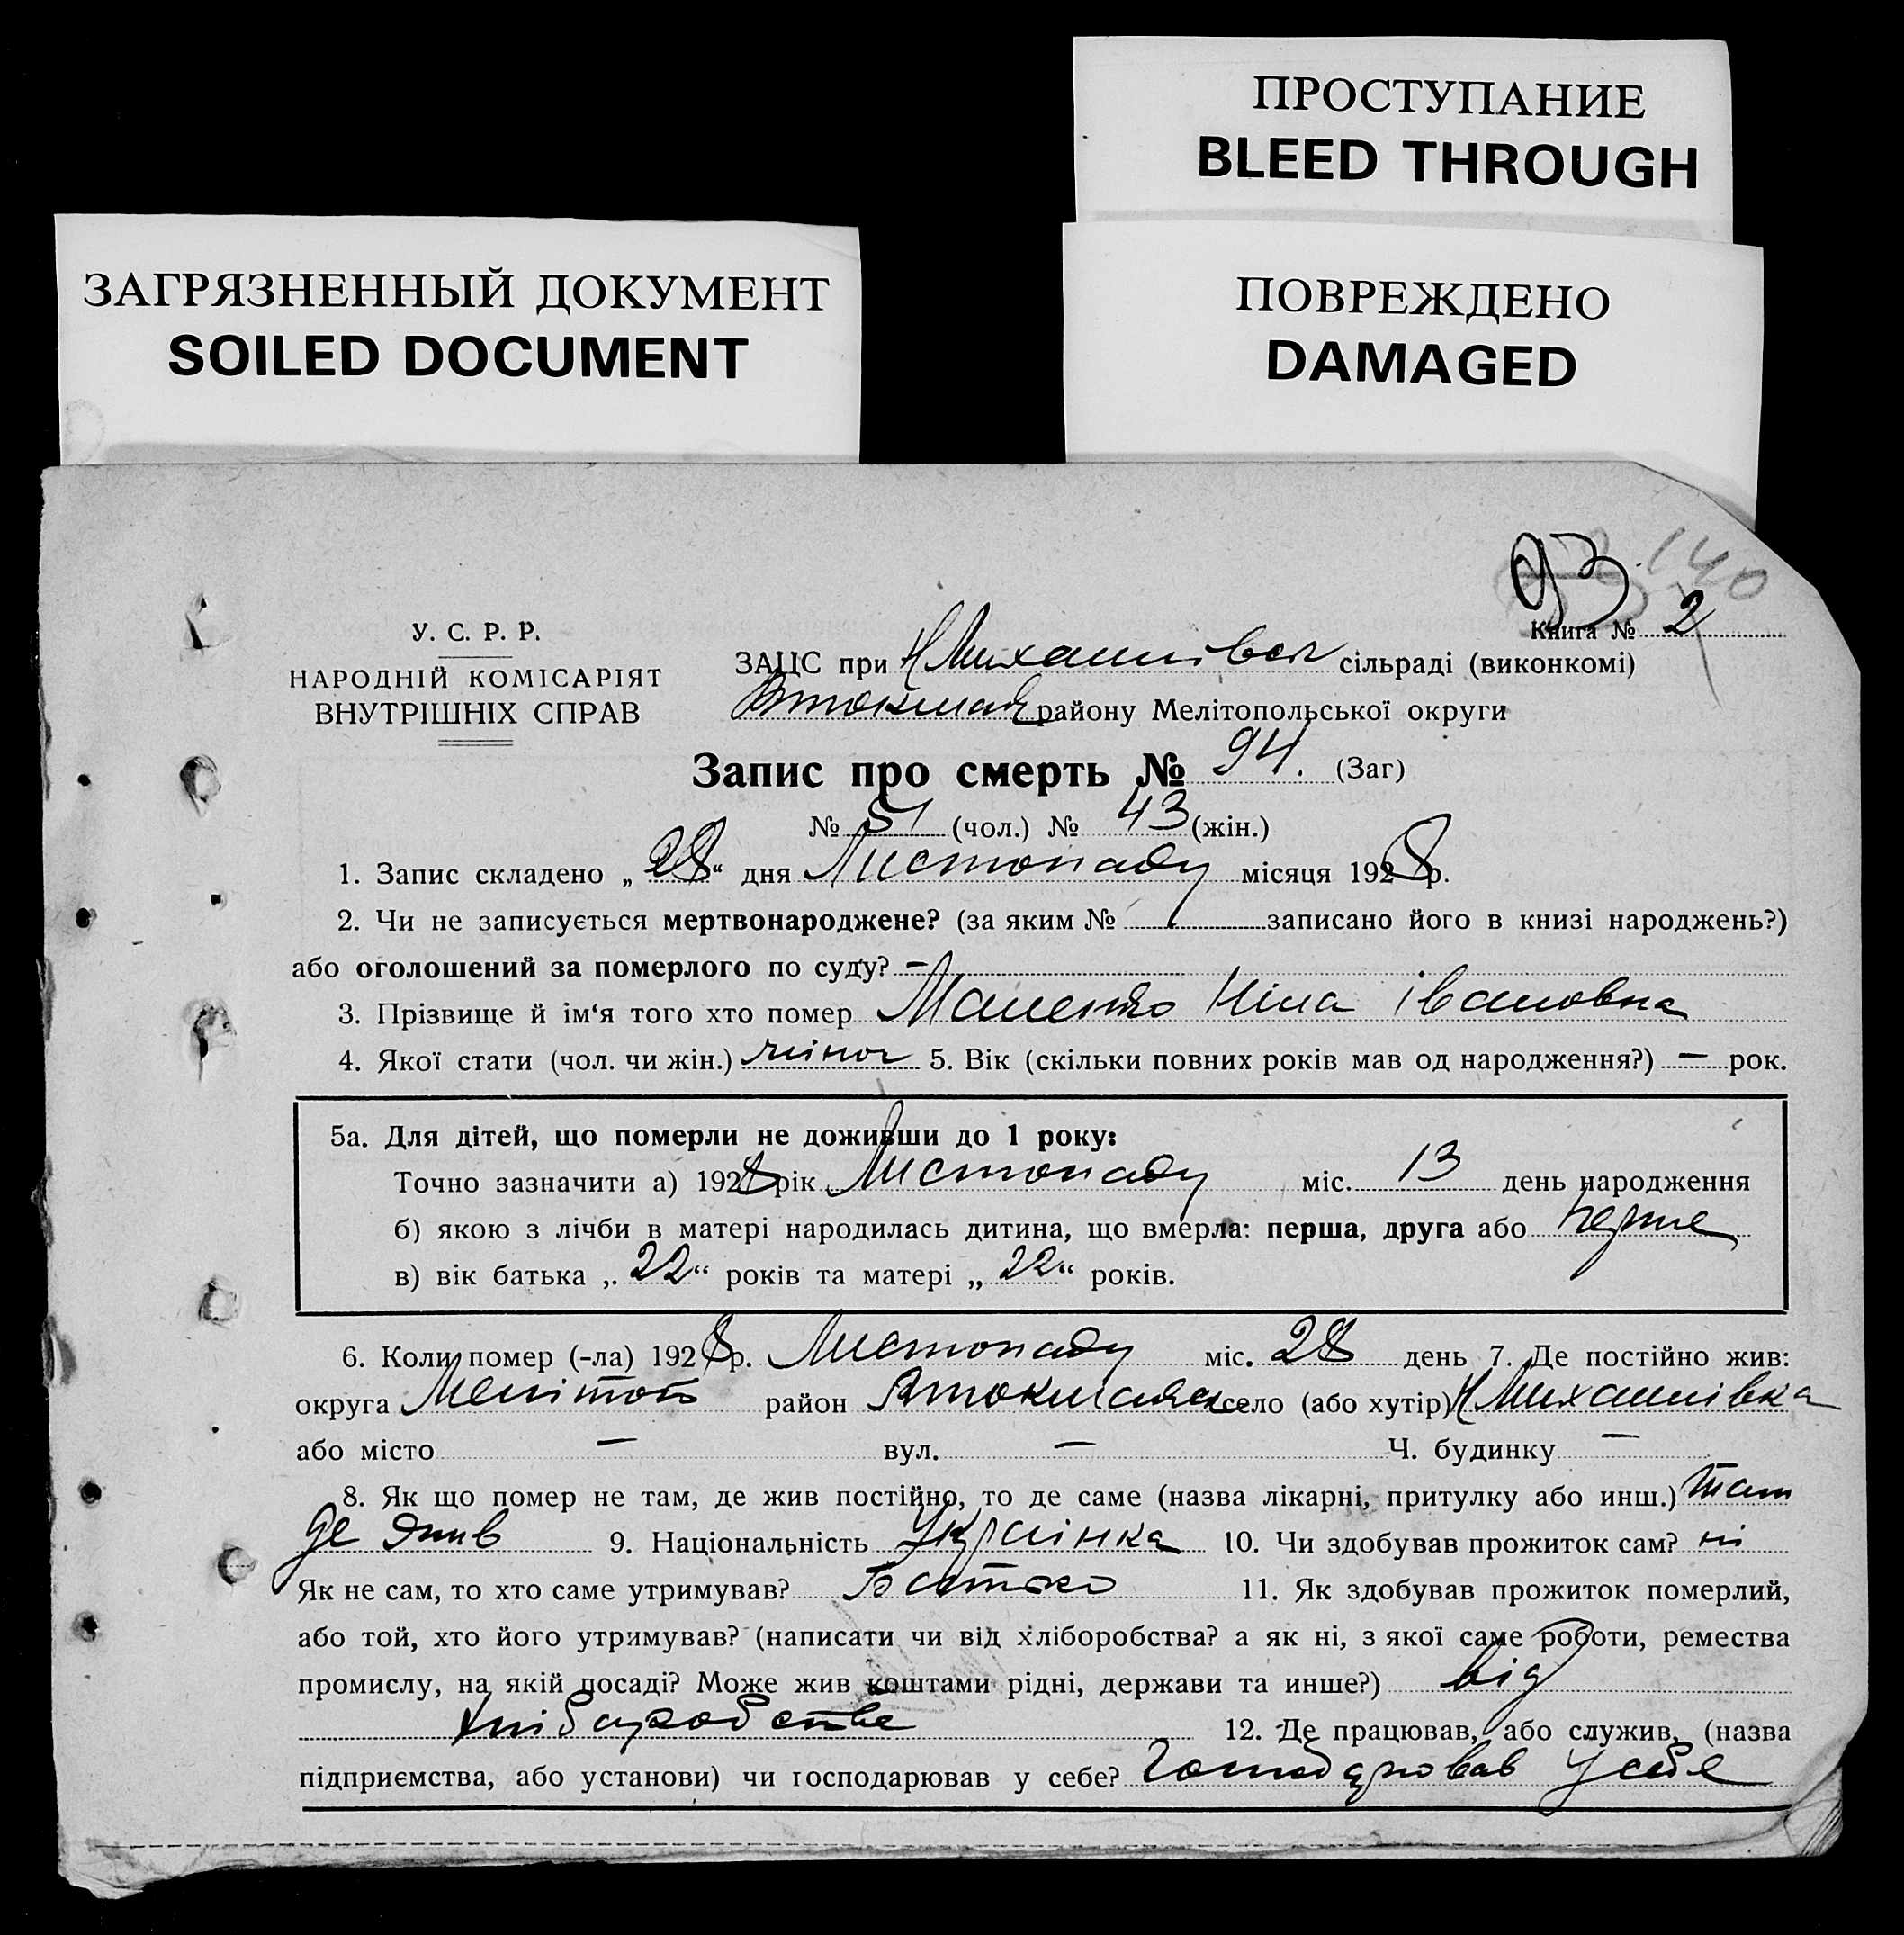 ПРОСТУПАНИЕ
BLEED THROUGH
ЗАГРЯЗНЕННЫЙ ДОКУМЕНТ
SOILED DOCUMENT
ПОВРЕЖДЕНО
DAMAGED
93 140
У. С. Р. Р.
НАРОДНІЙ КОМІСАРІЯТ
ВНУТРІШНІХ СПРАВ
Книга № 2
ЗАЦС при Н Михайлівск сільраді (виконкомі)
Втокмак району Мелітопольської округи
Запис про смерть № 94. (Заг)
№ 51 (чол.) № 43 (жін.)
1. Запис складено „ 28 “ дня Листопаду місяця 1928 р.
2. Чи не записується мертвонароджене? (за яким № записано його в книзі народжень?)
або оголошений за померлого по суду? —
3. Прізвище й ім‘я того хто помер Ніна Івановна
4. Якої стати (чол. чи жін.) жіноч 5. Вік (скільки повних років мав од народження?) — рок.
5а. Для дітей, що померли не доживши до 1 року:
Точно зазначити а) 1928 рік Листопаду міс. 13 день народження
б) якою з лічби в матері народилась дитина, що вмерла: перша, друга або перше
в) вік батька „ 22 “ років та матері „ 22 “ років.
6. Коли помер (-ла) 1928 р. Листопаду міс. 28 день 7. Де постійно жив:
округа Мелітоп район Втокмацьк село (або хутір) Н Михайлівка
або місто — вул. — Ч. будинку —
8. Як що помер не там, де жив постійно, то де саме (назва лікарні, притулку або инш.) там
де жив 9. Національність Українка 10. Чи здобував прожиток сам? ні
Як не сам, то хто саме утримував? Батько 11. Як здобував прожиток померлий,
або той, хто його утримував? (написати чи від хліборобства? а як ні, з якої саме роботи, ремества
промислу, на якій посаді? Може жив коштами рідні, держави та инше?) від
хліборобства 12. Де працював, або служив, (назва
підприємства, або установи) чи господарював у себе? Господарював у себе